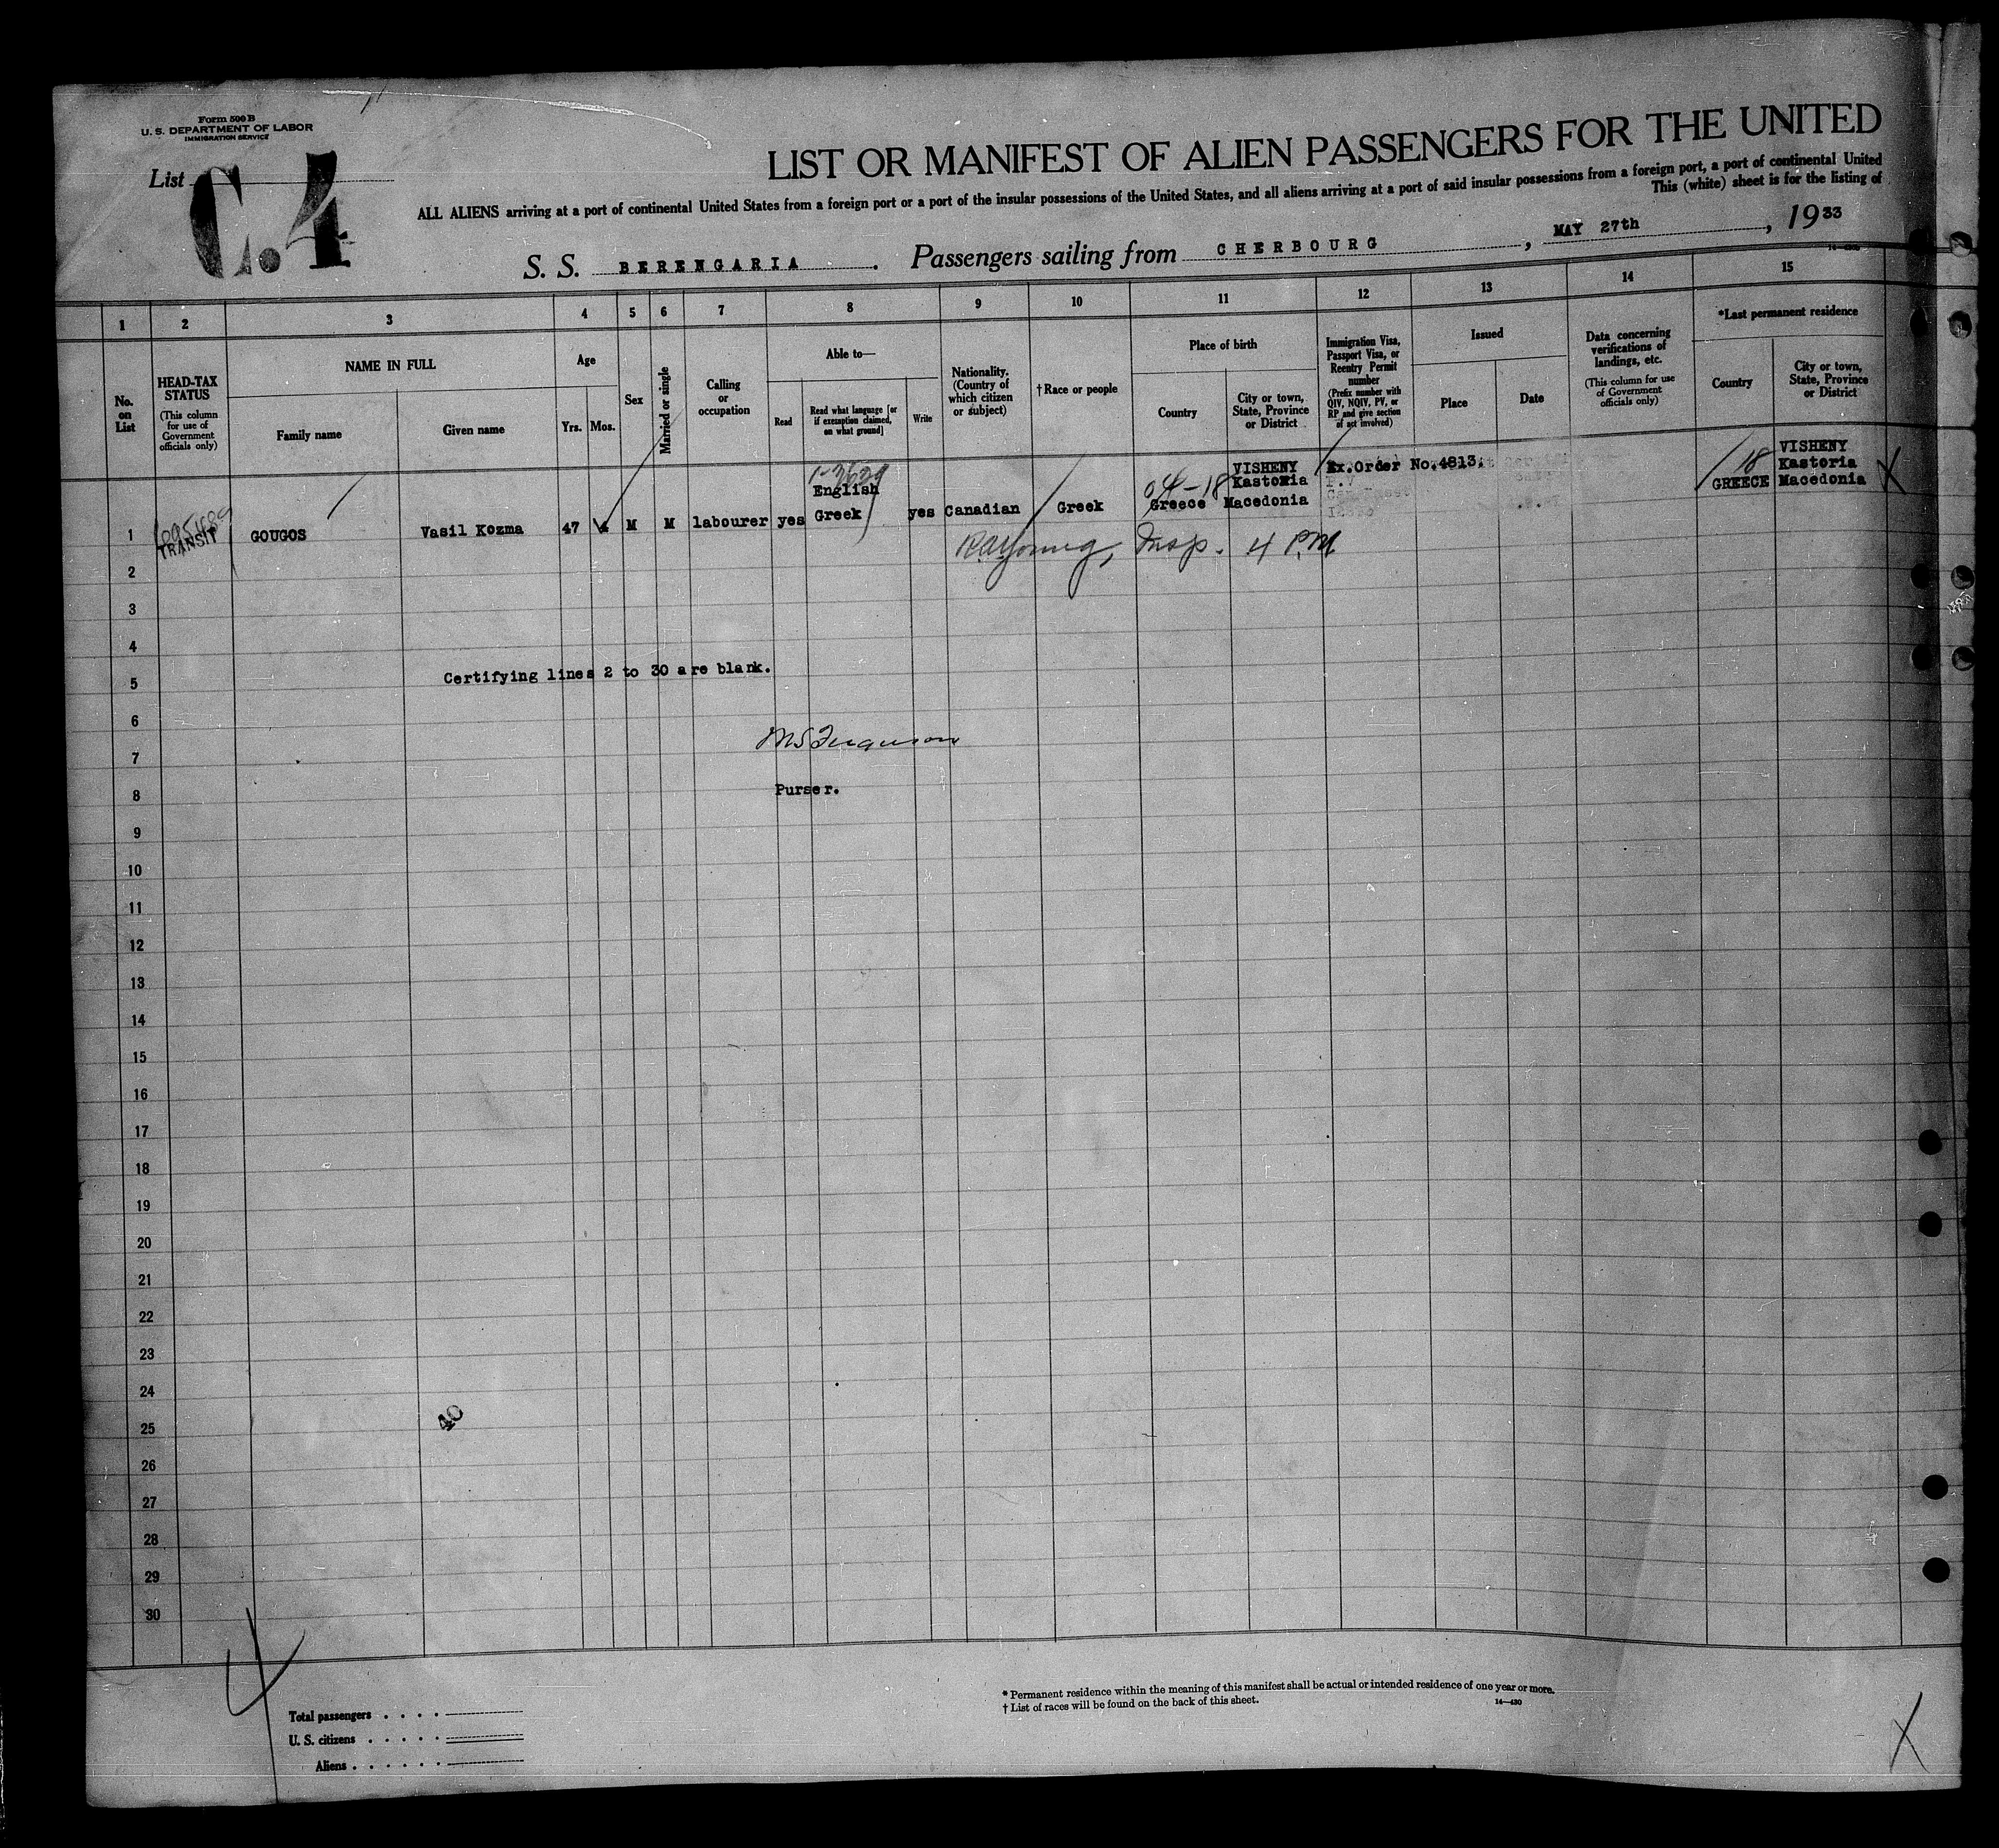 Form 500 B
U. S. DEPARTMENT OF LABOR
IMMIGRATION SERVICE
List
C.4
LIST OR MANIFEST OF ALIEN PASSENGERS FOR THE UNITED
ALL ALIENS arriving at a port of continental United States from a foreign port or a port of the insular possessions of the United States, and all aliens arriving at a port of said insular possessions from a foreign port, a port of continental United
This (white) sheet is for the listing of
S. S. BERENGARIA . Passengers sailing from CHERBOURG , MAY 27th , 1933
1 2 3 4 5 6 7 8 9 10 11 12 13 14 15
No. on List
HEAD-TAX STATUS
(This column for use of Government officials only)
NAME IN FULL
Family name
Given name
Age
Yrs. Mos.
Sex
Married or single
Calling or occupation
Able to—
Read
Read what language [or if exemption claimed, on what ground]
Write
Nationality. (Country of which citizen or subject)
†Race or people
Place of birth
Country
City or town, State, Province or District
Immigration Visa, Passport Visa, or Reentry Permit number
(Prefix number with QIV, NQIV, PV, or RP and give section of act involved)
Issued
Place
Date
Data concerning verifications of landings, etc.
(This column for use of Government officials only)
*Last permanent residence
Country
City or town, State, Province or District
1 TRANSIT GOUGOS Vasil Kozma 47 M M labourer yes English Greek yes Canadian Greek Greece VISHENY Kastoria Macedonia Ex.Order No.4813. 18 GREECE VISHENY Kastoria Macedonia X
04-18
Insp. 4 P.M
2
3
4
5
Certifying lines 2 to 30 are blank.
6
7
Ferguson
8
Purser.
9
10
11
12
13
14
15
16
17
18
19
20
21
22
23
24
25
40
26
27
28
29
30
Total passengers . . . .
U. S. citizens . . . . .
Aliens . . . . . .
* Permanent residence within the meaning of this manifest shall be actual or intended residence of one year or more.
† List of races will be found on the back of this sheet.
14—430
X